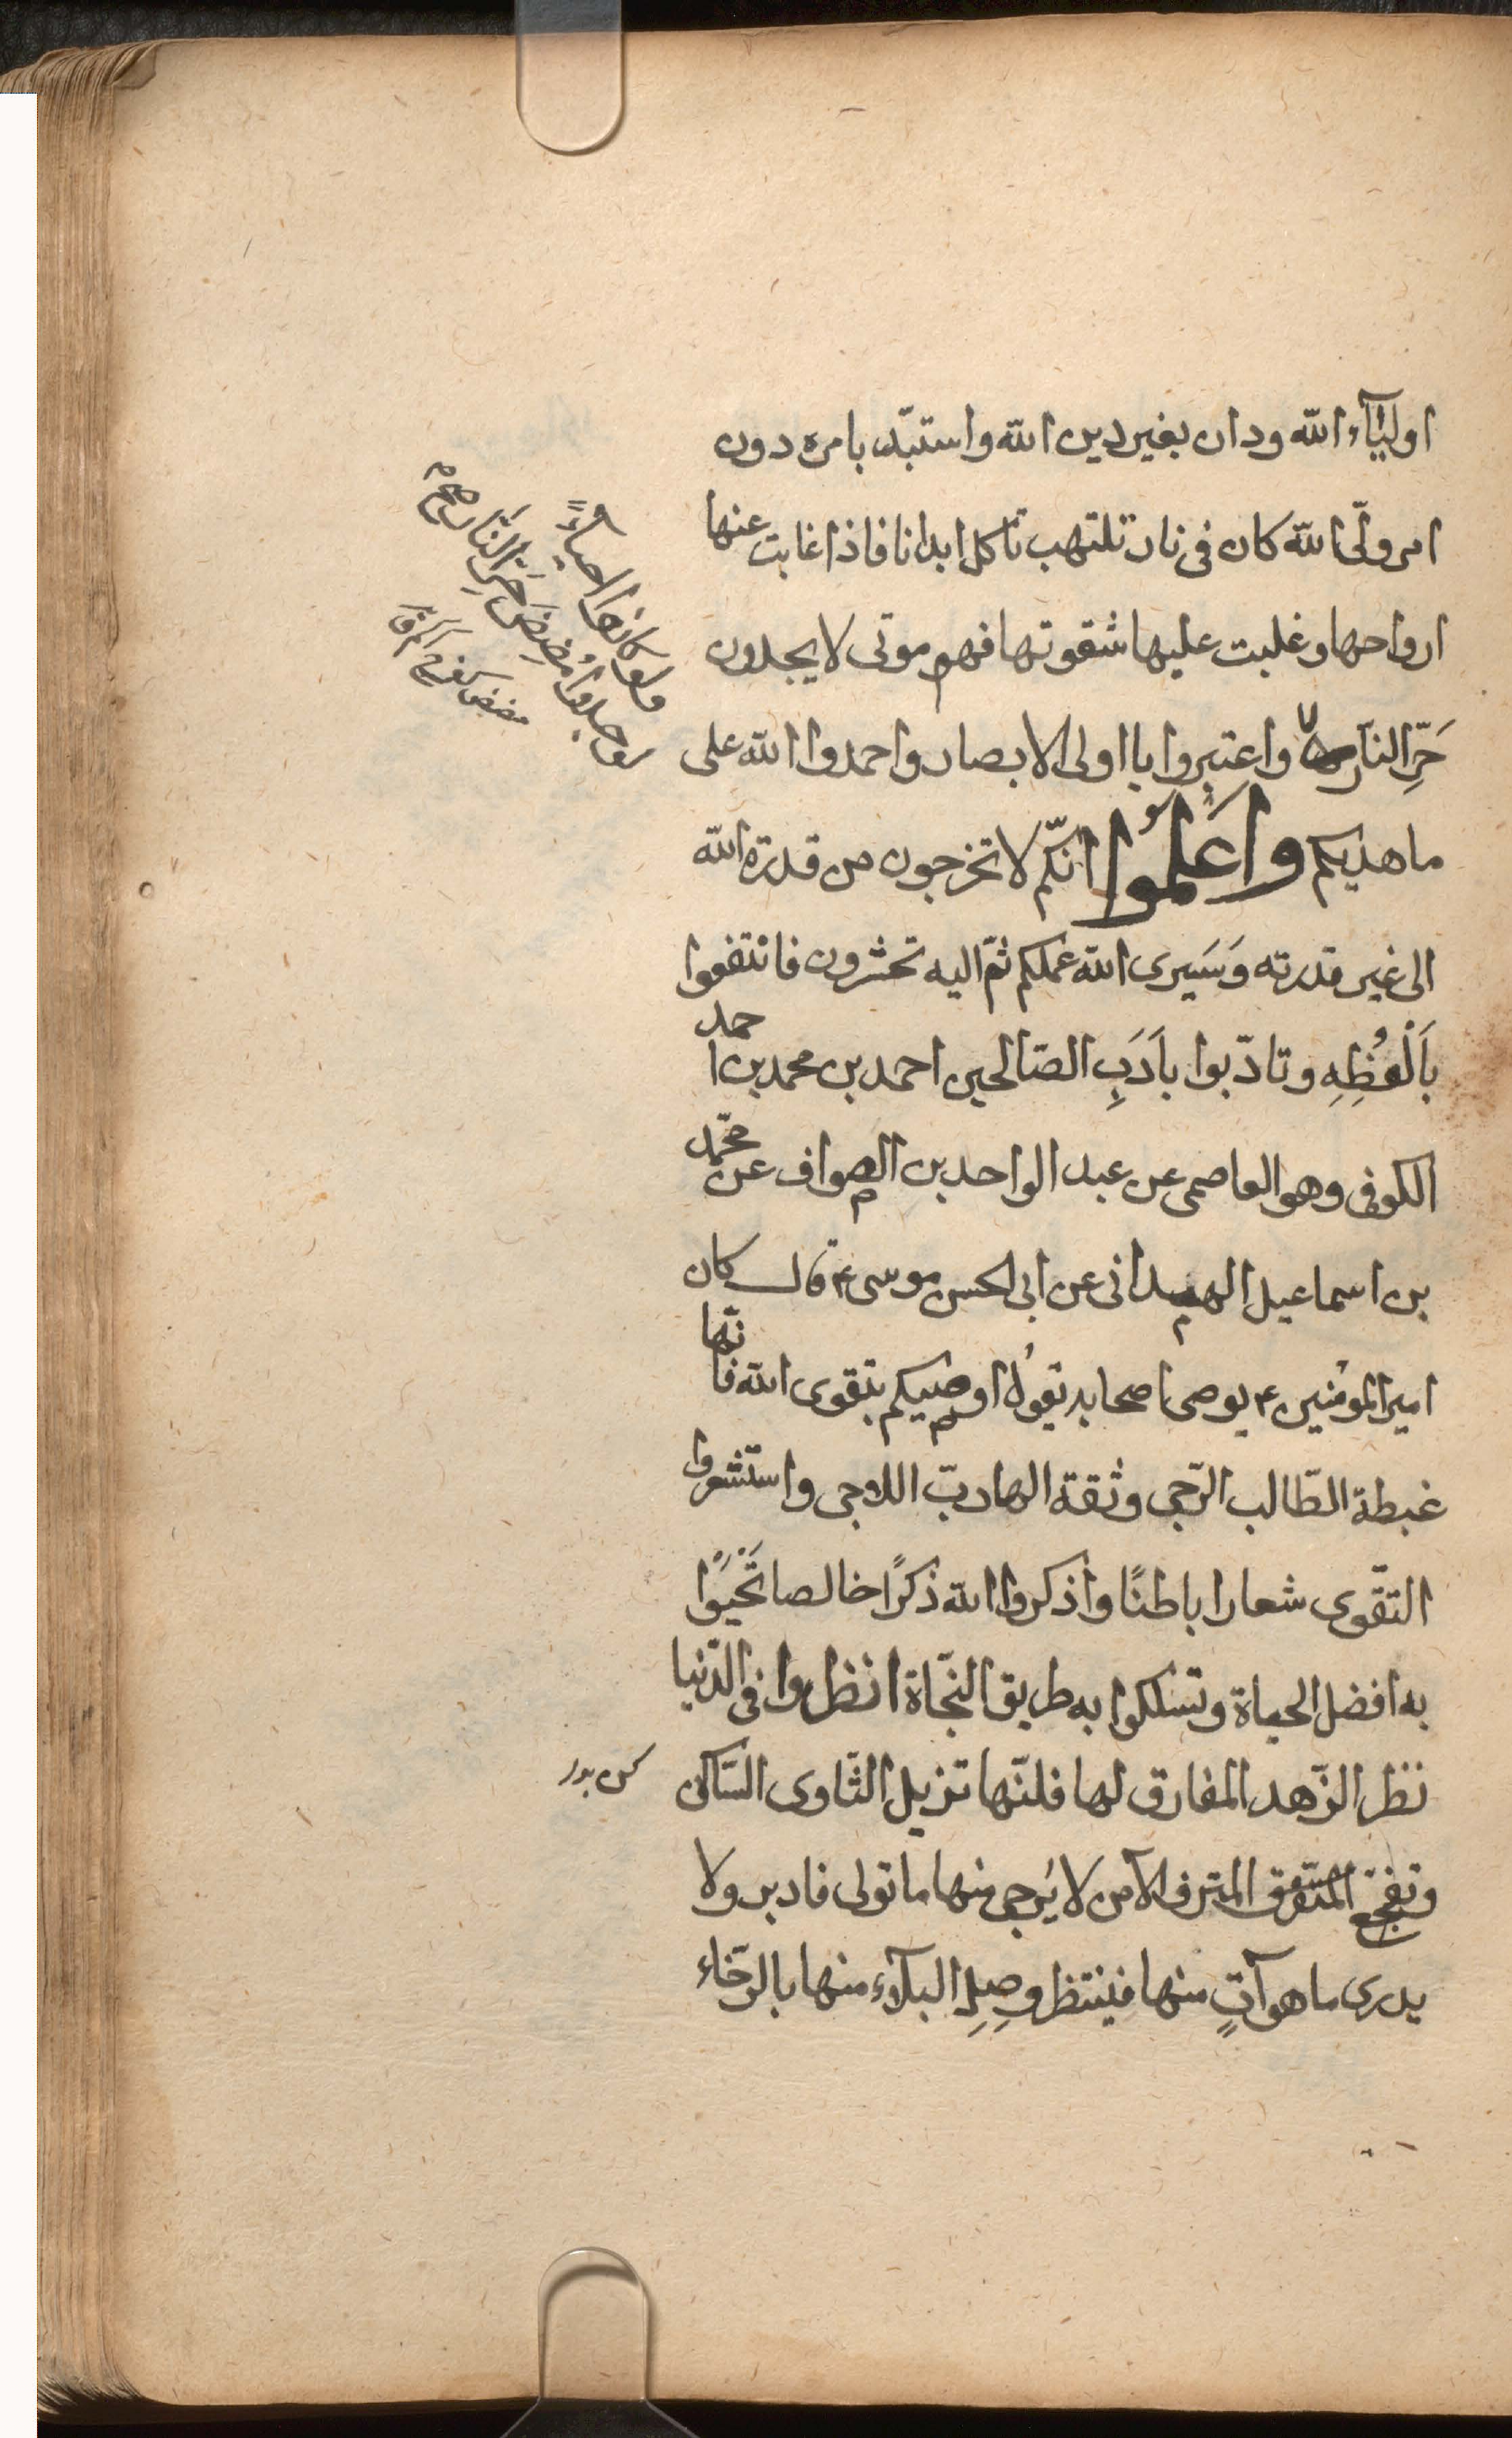 اوليآء الله ودان بغير دين الله واستبدّ بامره دون
امر ولّى الله كان فى نار تلتهب تاكل ابدانا فاذا غابت عنها
ارواحها وغلبت عليها شقوتها فهم موتى لا يجدون
حَرِّ النّار واعتبروا يا اولى الابصار واحمدوا الله على
ما هديكم وَاعْلَمُوا انّكم لا تخرجون من قدرة الله
الى غير قدرته وَسَيرى الله عملكم ثمّ اليه تحشرون فانتفعوا
بِالْعُظِهِ وتادّبوا بأَدَبِ الصّالحين احمد بن محمد بن احمد
الكوفى وهو العاصمى عن عبد الواحد بن الصواف عن محمّد
بن اسماعيل الهمدانى عن ابى الحسن موسى ع قال كان
امير المؤمنين ع يوصى اصحابه يقولُ اوصيكم بتقوى الله فانّها
غبطة الطّالب الرّجى وثقة الهارب اللاجى واستشعروا
التقّوى شعارا باطنًا واذكروا الله ذكرًا خالصا تَحْيَوْا
به افضل الحياة وتسلكوا به طريق النجّاة انظروا فى الدّنيا
نظر الزّهد المفارق لها فانّها تزيل الثّاوى السّاكن
وتفجع المترف الآمن لا يُرجى منها ما تولى فادبر ولا
يدرى ما هو آتٍ منها فينتظر وصِلِ البلآء منها بالرّخاء
ولو كانوا احياءً
لوجدوا مَضِضَ حَرِّ النّار صح